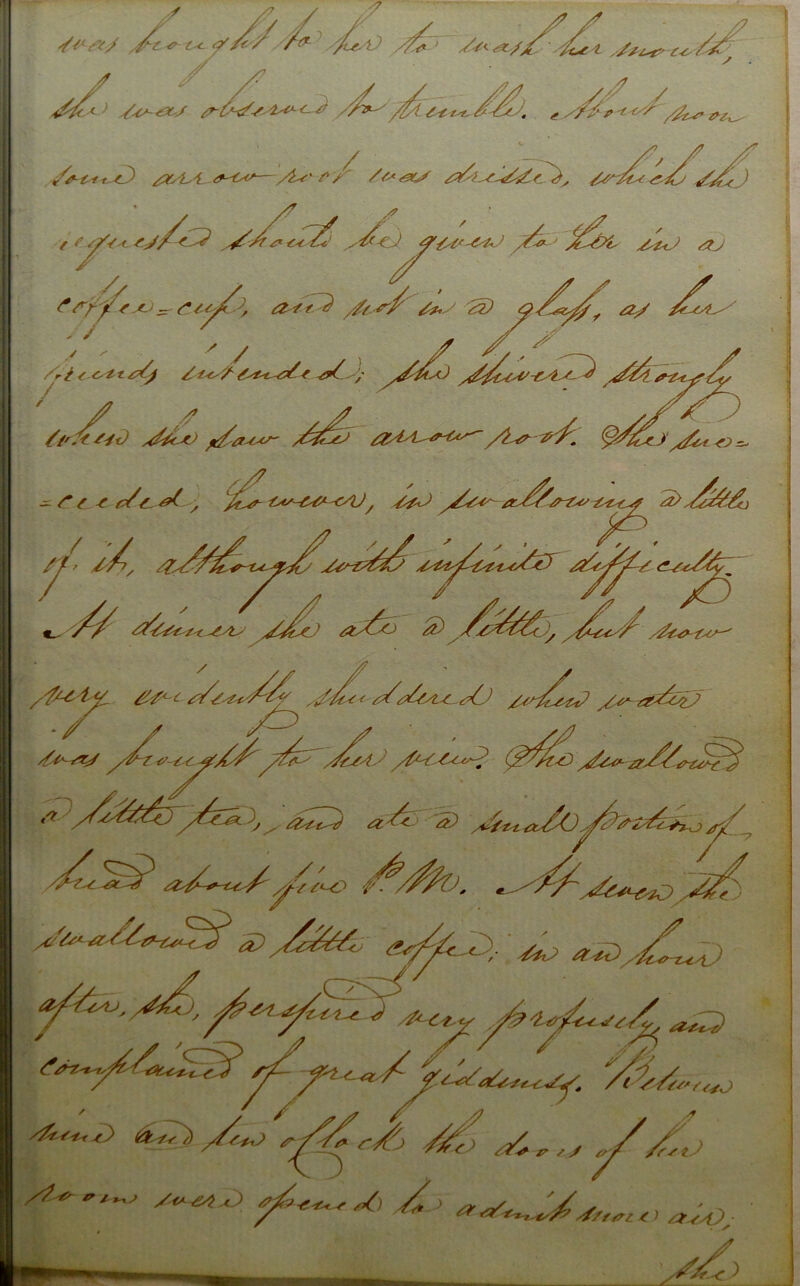 was brought to her to wash her mouth,
she was observed to tremble. About noon
some arrow-root was dressed, which she
requested should be given to her in a
coffee=cup, and not in a glaſs, as her
friends intended; she shivered strongly
when she saw the arrow root. She suc=
=ceeded, however, in swallowing a little
of it, although with infinite difficulty.
At dinner she ate a little, but now
very evidently shuddered when water
was brought to her view. She swallowed
a little tea, and ate a small portion of
bread about five P. M. At seven she
swallowed a little coffee; in an hour
after, she, perspired very profusely, and
complained of great giddiness. Between
nine and ten o'Clock the doors of her
room were opened to admit more air;
she